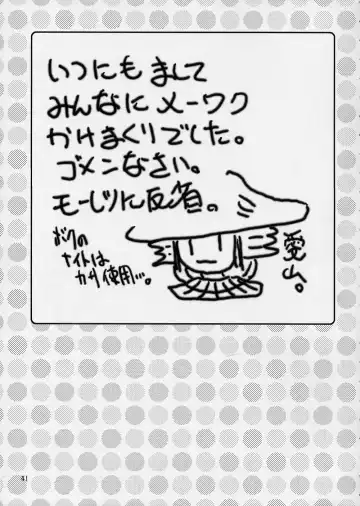 いつにもまして
みんなにメーワク
かけまくりでした。
ゴメンなさい。
モーレツに反省。
ボクの
ナイトは
から使用…。
愛山。
41